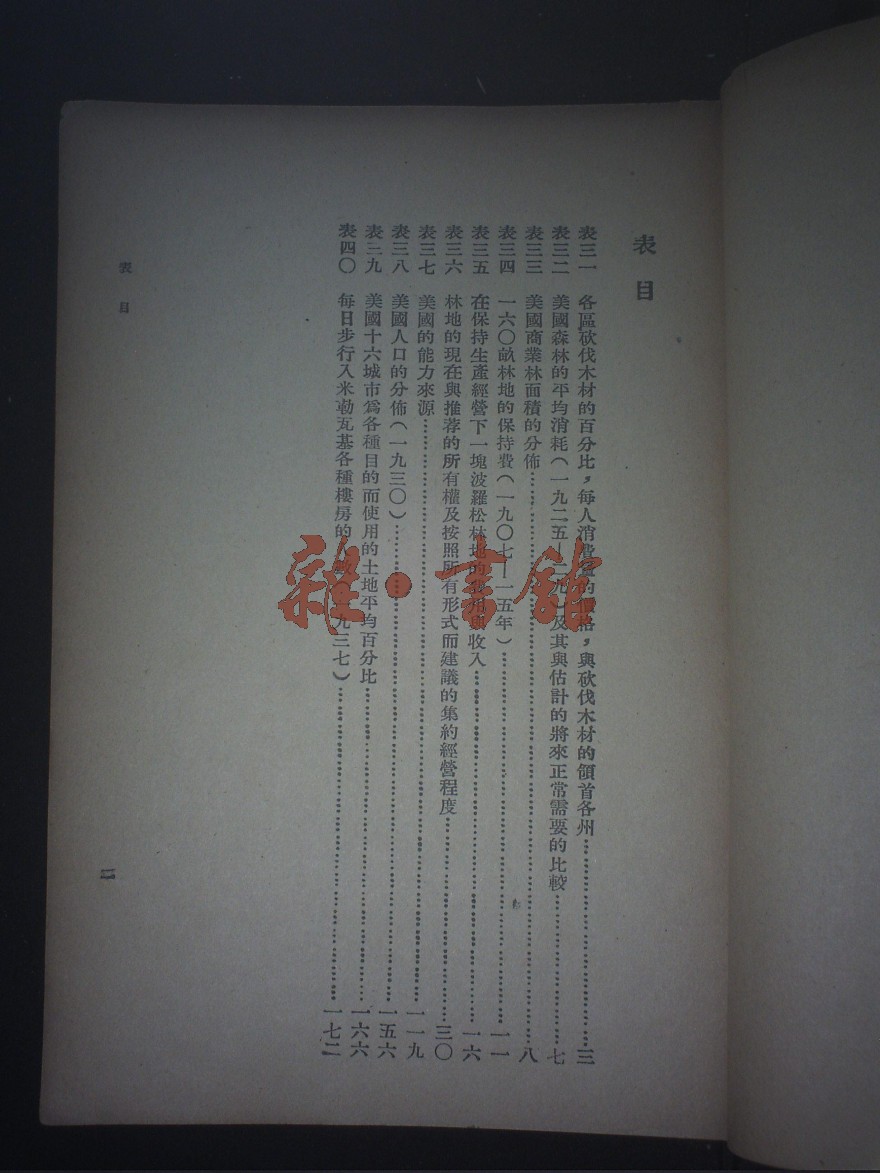 表目
表三一　各區砍伐木材的百分比，每人消費量的價格，與砍伐木材的領首各州……三
表三二　美國森林的平均消耗（一九二五—二九）及其與估計的將來正常需要的比較……七
表三三　美國商業林面積的分佈……八
表三四　一六〇畝林地的保持費（一九〇七—一五年）……一一
表三五　在保持生產經營下一塊波羅松林地的 收入……一六
表三六　林地的現在與推荐的所有權及按照所有形式而建議的集約經營程度……三〇
表三七　美國的能力來源……一一九
表三八　美國人口的分佈（一九三〇）……一五六
表三九　美國十六城市爲各種目的而使用的土地平均百分比……一六六
表四〇　每日步行入米勒瓦基各種樓房的人數（一九三七）……一七二
表目
二
雜·書館